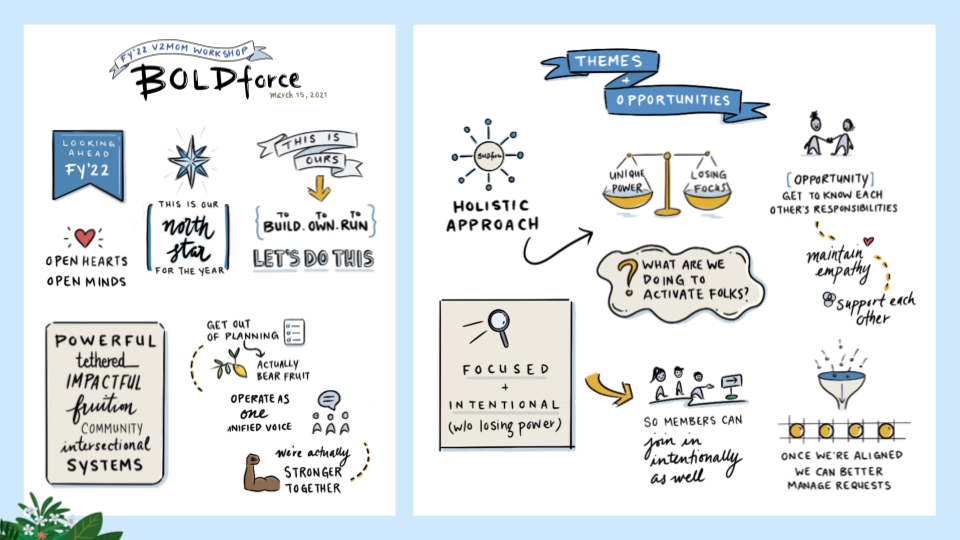 FY'22 V2MOM WORKSHOP
BOLDforce
march 15, 2021
LOOKING
AHEAD
FY'22
THIS IS OUR
north
star
FOR THE YEAR
THIS IS
OURS
TO TO TO
BUILD. OWN. RUN
LET'S DO THIS
OPEN HEARTS
OPEN MINDS
POWERFUL
tethered
IMPACTFUL
fruition
COMMUNITY
intersectional
SYSTEMS
GET OUT
OF PLANNING
ACTUALLY
BEAR FRUIT
OPERATE AS
one
UNIFIED VOICE
we're actually
STRONGER
TOGETHER
THEMES
+
OPPORTUNITIES
Boldforce
HOLISTIC
APPROACH
UNIQUE
POWER
LOSING
FOCUS
[OPPORTUNITY]
GET TO KNOW EACH
OTHER'S RESPONSIBILITIES
maintain
empathy
support each
other
? WHAT ARE WE
DOING TO
ACTIVATE FOLKS?
FOCUSED
+
INTENTIONAL
(w/o losing power)
SO MEMBERS CAN
join in
intentionally
as well
ONCE WE'RE ALIGNED
WE CAN BETTER
MANAGE REQUESTS